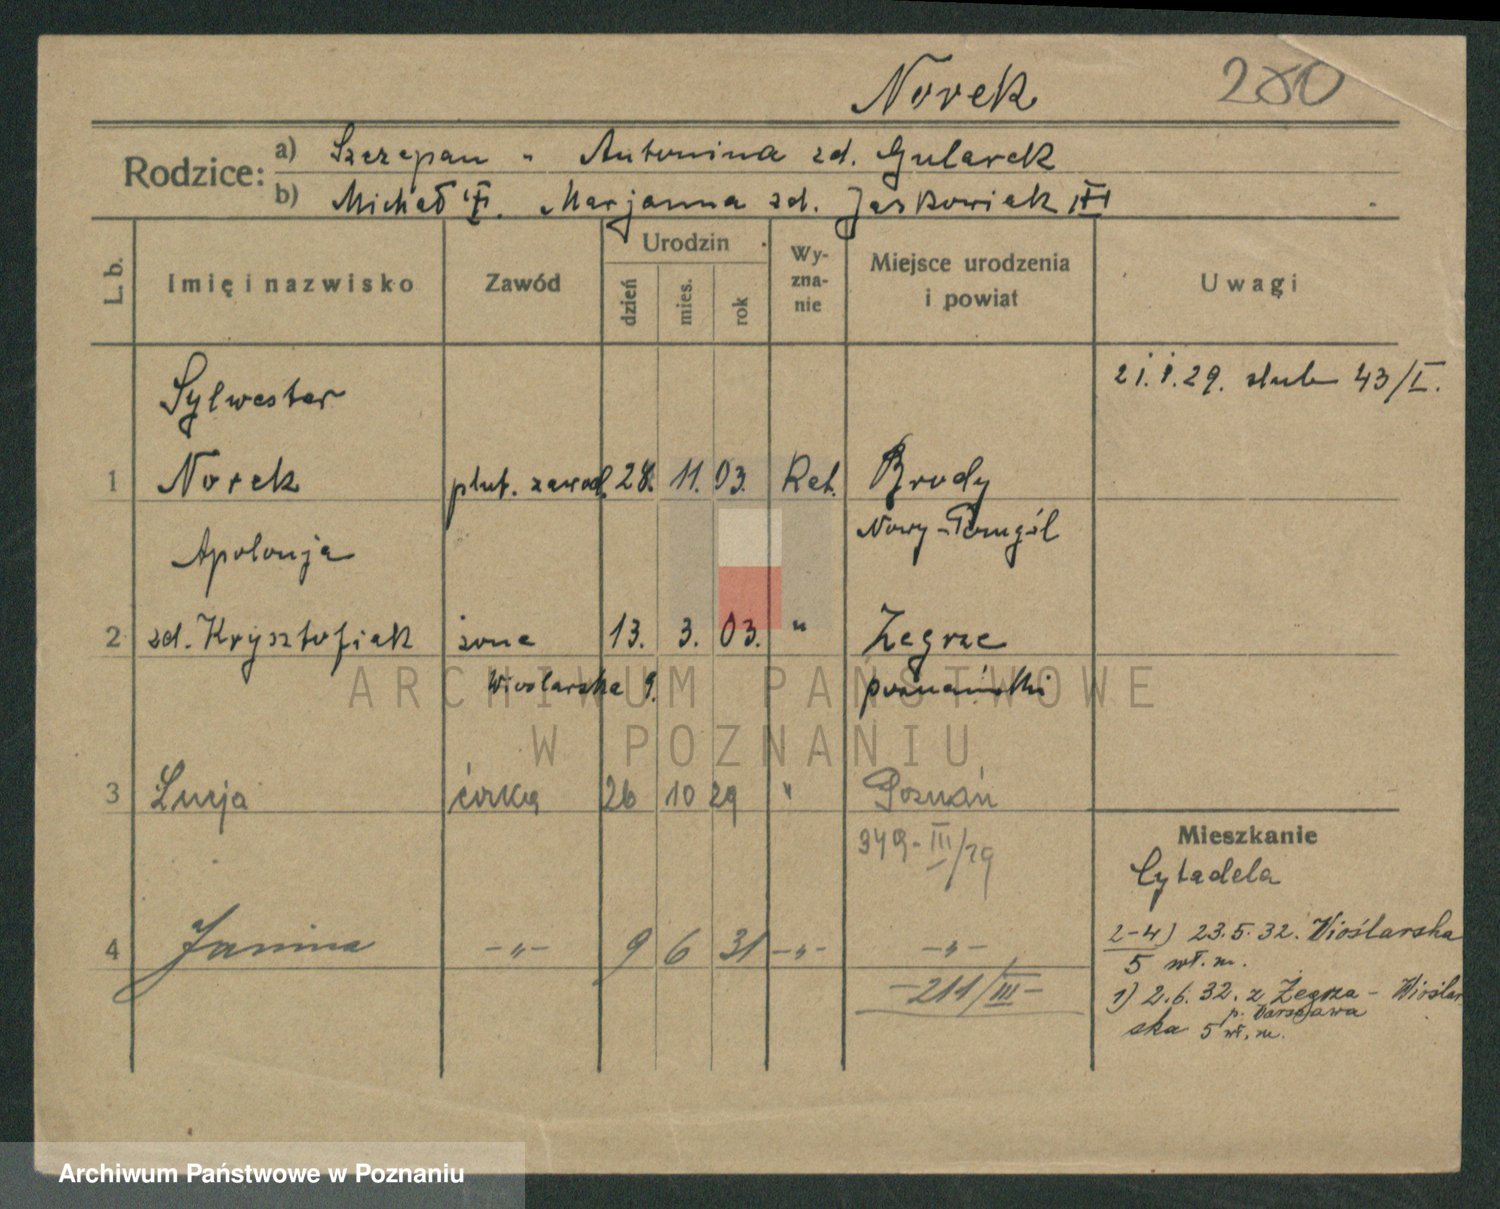 Norek 280
Rodzice: a) Szczepan - Antonina zd. Gularek
b) Michał Marjanna zd. Jaskowiak
L. b. Imię i nazwisko Zawód Urodzin dzień mies. rok Wyznanie Miejsce urodzenia i powiat Uwagi
21.1.29. ślub 43/I.
Sylwester
1 Norek plut. zawod. 28. 11. 03. Kat. Brody
Nowy-Tomyśl
Apolonja
2 zd. Krysztofiak żona 13. 3. 03. " Zegrze
Wioślarska 9. poznański
3 Łucja córka 26 10 29 " Poznań
Mieszkanie
949-III/29
Cytadela
4 Janina -"- 9 6 31 -"- -"-
2-4) 23.5.32. Wioślarska
5 wł. m.
-211/III-
1) 2.6.32. z Zegrza - Wioślar
p. Warszawa
ska 5 wł. m.
ARCHIWUM PAŃSTWOWE
W POZNANIU
Archiwum Państwowe w Poznaniu